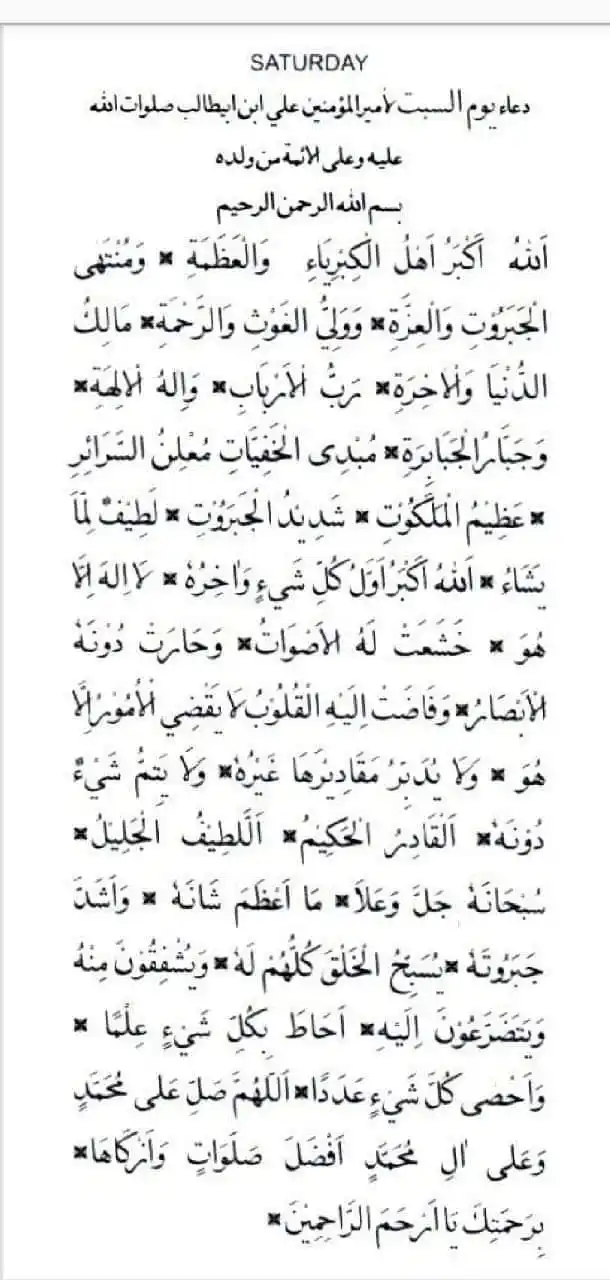 SATURDAY
دعاء يوم السبت لأميرالمؤمنين علي ابن ابيطالب صلوات الله
عليه وعلى الائمة من ولده
بسم الله الرحمن الرحيم
اَللهُ اَكْبَرُ اَهْلُ الْكِبْرِيَاءِ وَالْعَظَمَةِ * وَمُنْتَهٰى
الْجَبَرُوْتِ وَالْعِزَّةِ * وَوَلِيُّ الْغَوْثِ وَالرَّحْمَةِ * مَالِكُ
الدُّنْيَا وَالْاٰخِرَةِ * رَبُّ الْاَرْبَابِ * وَاِلٰهُ الْاٰلِهَةِ *
وَجَبَّارُ الْجَبَابِرَةِ * مُبْدِى الْخَفِيَّاتِ مُعْلِنُ السَّرَائِرِ
* عَظِيْمُ الْمَلَكُوْتِ * شَدِيْدُ الْجَبَرُوْتِ * لَطِيْفٌ لِمَا
يَشَاءُ * اَللهُ اَكْبَرُ اَوَّلُ كُلِّ شَيْءٍ وَاٰخِرُهٗ * لَا اِلٰهَ اِلَّا
هُوَ * خَشَعَتْ لَهُ الْاَصْوَاتُ * وَحَارَتْ دُوْنَهٗ
الْاَبْصَارُ * وَفَاضَتْ اِلَيْهِ الْقُلُوْبُ لَا يَقْضِي الْاُمُوْرَ اِلَّا
هُوَ * وَلَا يُدَبِّرُ مَقَادِيْرَهَا غَيْرُهٗ * وَلَا يَتِمُّ شَيْءٌ
دُوْنَهٗ * اَلْقَادِرُ الْحَكِيْمُ * اَللَّطِيْفُ الْجَلِيْلُ *
سُبْحَانَهٗ جَلَّ وَعَلَا * مَا اَعْظَمَ شَانَهٗ * وَاَشَدَّ
جَبَرُوْتَهٗ * يُسَبِّحُ الْخَلْقَ كُلُّهُمْ لَهٗ * وَيُشْفِقُوْنَ مِنْهُ
وَيَتَضَرَّعُوْنَ اِلَيْهِ * اَحَاطَ بِكُلِّ شَيْءٍ عِلْمًا *
وَاَحْصٰى كُلَّ شَيْءٍ عَدَدًا * اَللّٰهُمَّ صَلِّ عَلٰى مُحَمَّدٍ
وَعَلٰى اٰلِ مُحَمَّدٍ اَفْضَلَ صَلَوَاتٍ وَاَزْكَاهَا *
بِرَحْمَتِكَ يَا اَرْحَمَ الرَّاحِمِيْنَ *